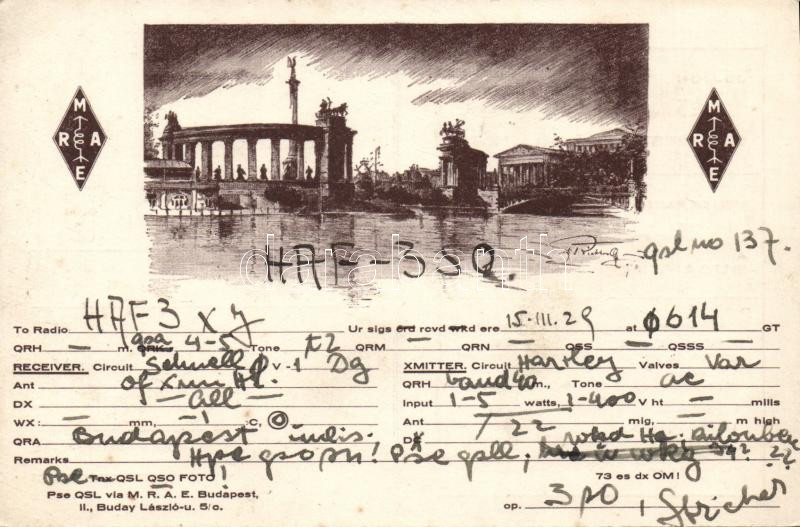 M
R A
E
M
R A
E
HAF-33Q. qsl no 137.
To Radio HAF3xy Ur sigs crd rcvd wkd ere 15-III.29 at 0614 GT
QRH — m. QRK qsa 4-5 Tone t2 QRM — QRN — QSS — QSSS —
RECEIVER. Circuit Schnell 0 V-1 Dg XMITTER. Circuit Hartley Valves Var
Ant of Xmr QRH band 40 m., Tone ac
DX — all — Input 1-5 watts, 1-400 V ht — mills
WX: — mm, — C, Ant mtg, — m high
QRA Budapest DX wkd
Remarks Hpe qso Pse qsll,
Pse Tnx QSL QSO FOTO ! 73 es dx OM !
Pse QSL via M. R. A. E. Budapest,
II., Buday László-u. 5/c. op.